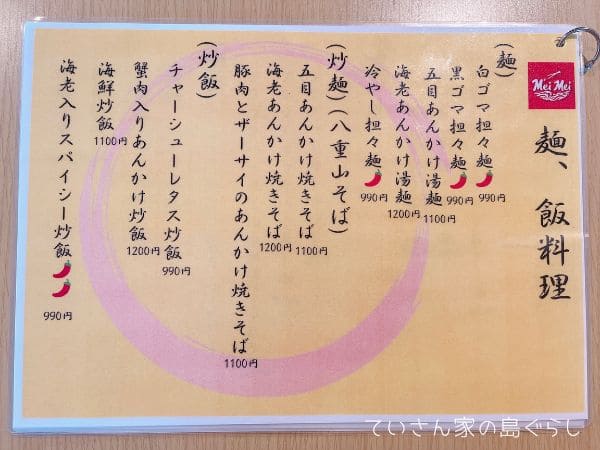 Mei Mei
麺、飯料理
(麺)
白ゴマ担々麺 990円
黒ゴマ担々麺 990円
五目あんかけ湯麺 1100円
海老あんかけ湯麺 1200円
冷やし担々麺 990円
(炒麺)(八重山そば)
五目あんかけ焼きそば 1100円
海老あんかけ焼きそば 1200円
豚肉とザーサイのあんかけ焼きそば 1100円
(炒飯)
チャーシューレタス炒飯 990円
蟹肉入りあんかけ炒飯 1200円
海鮮炒飯 1100円
海老入りスパイシー炒飯 990円
ていさん家の島ぐらし